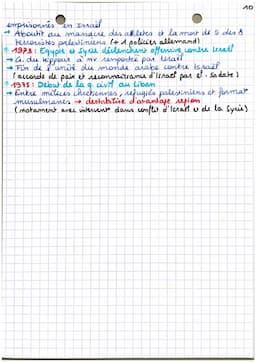 10
emprisonnés en Israël
→ Aboutit au massacre des athlètes et la mort de 5 des 8
terroristes palestiniens (+ 1 policier allemand)
* 1973 : Egypte et Syrie déclenchent offensive contre Israël
→ G. du Kippour à nv remportée par Israël
→ Fin de l'unité du monde arabe contre Israël
(accords de paix et reconnaissance d'Israël par el-Sadate)
* 1975 : Début de la g civil au Liban
→ Entre milices chrétiennes, réfugiés palestiniens et format°
musulmanes → déstabilise d'avantage région
(notamment avec intervent° dans conflit d'Israël et de la Syrie)